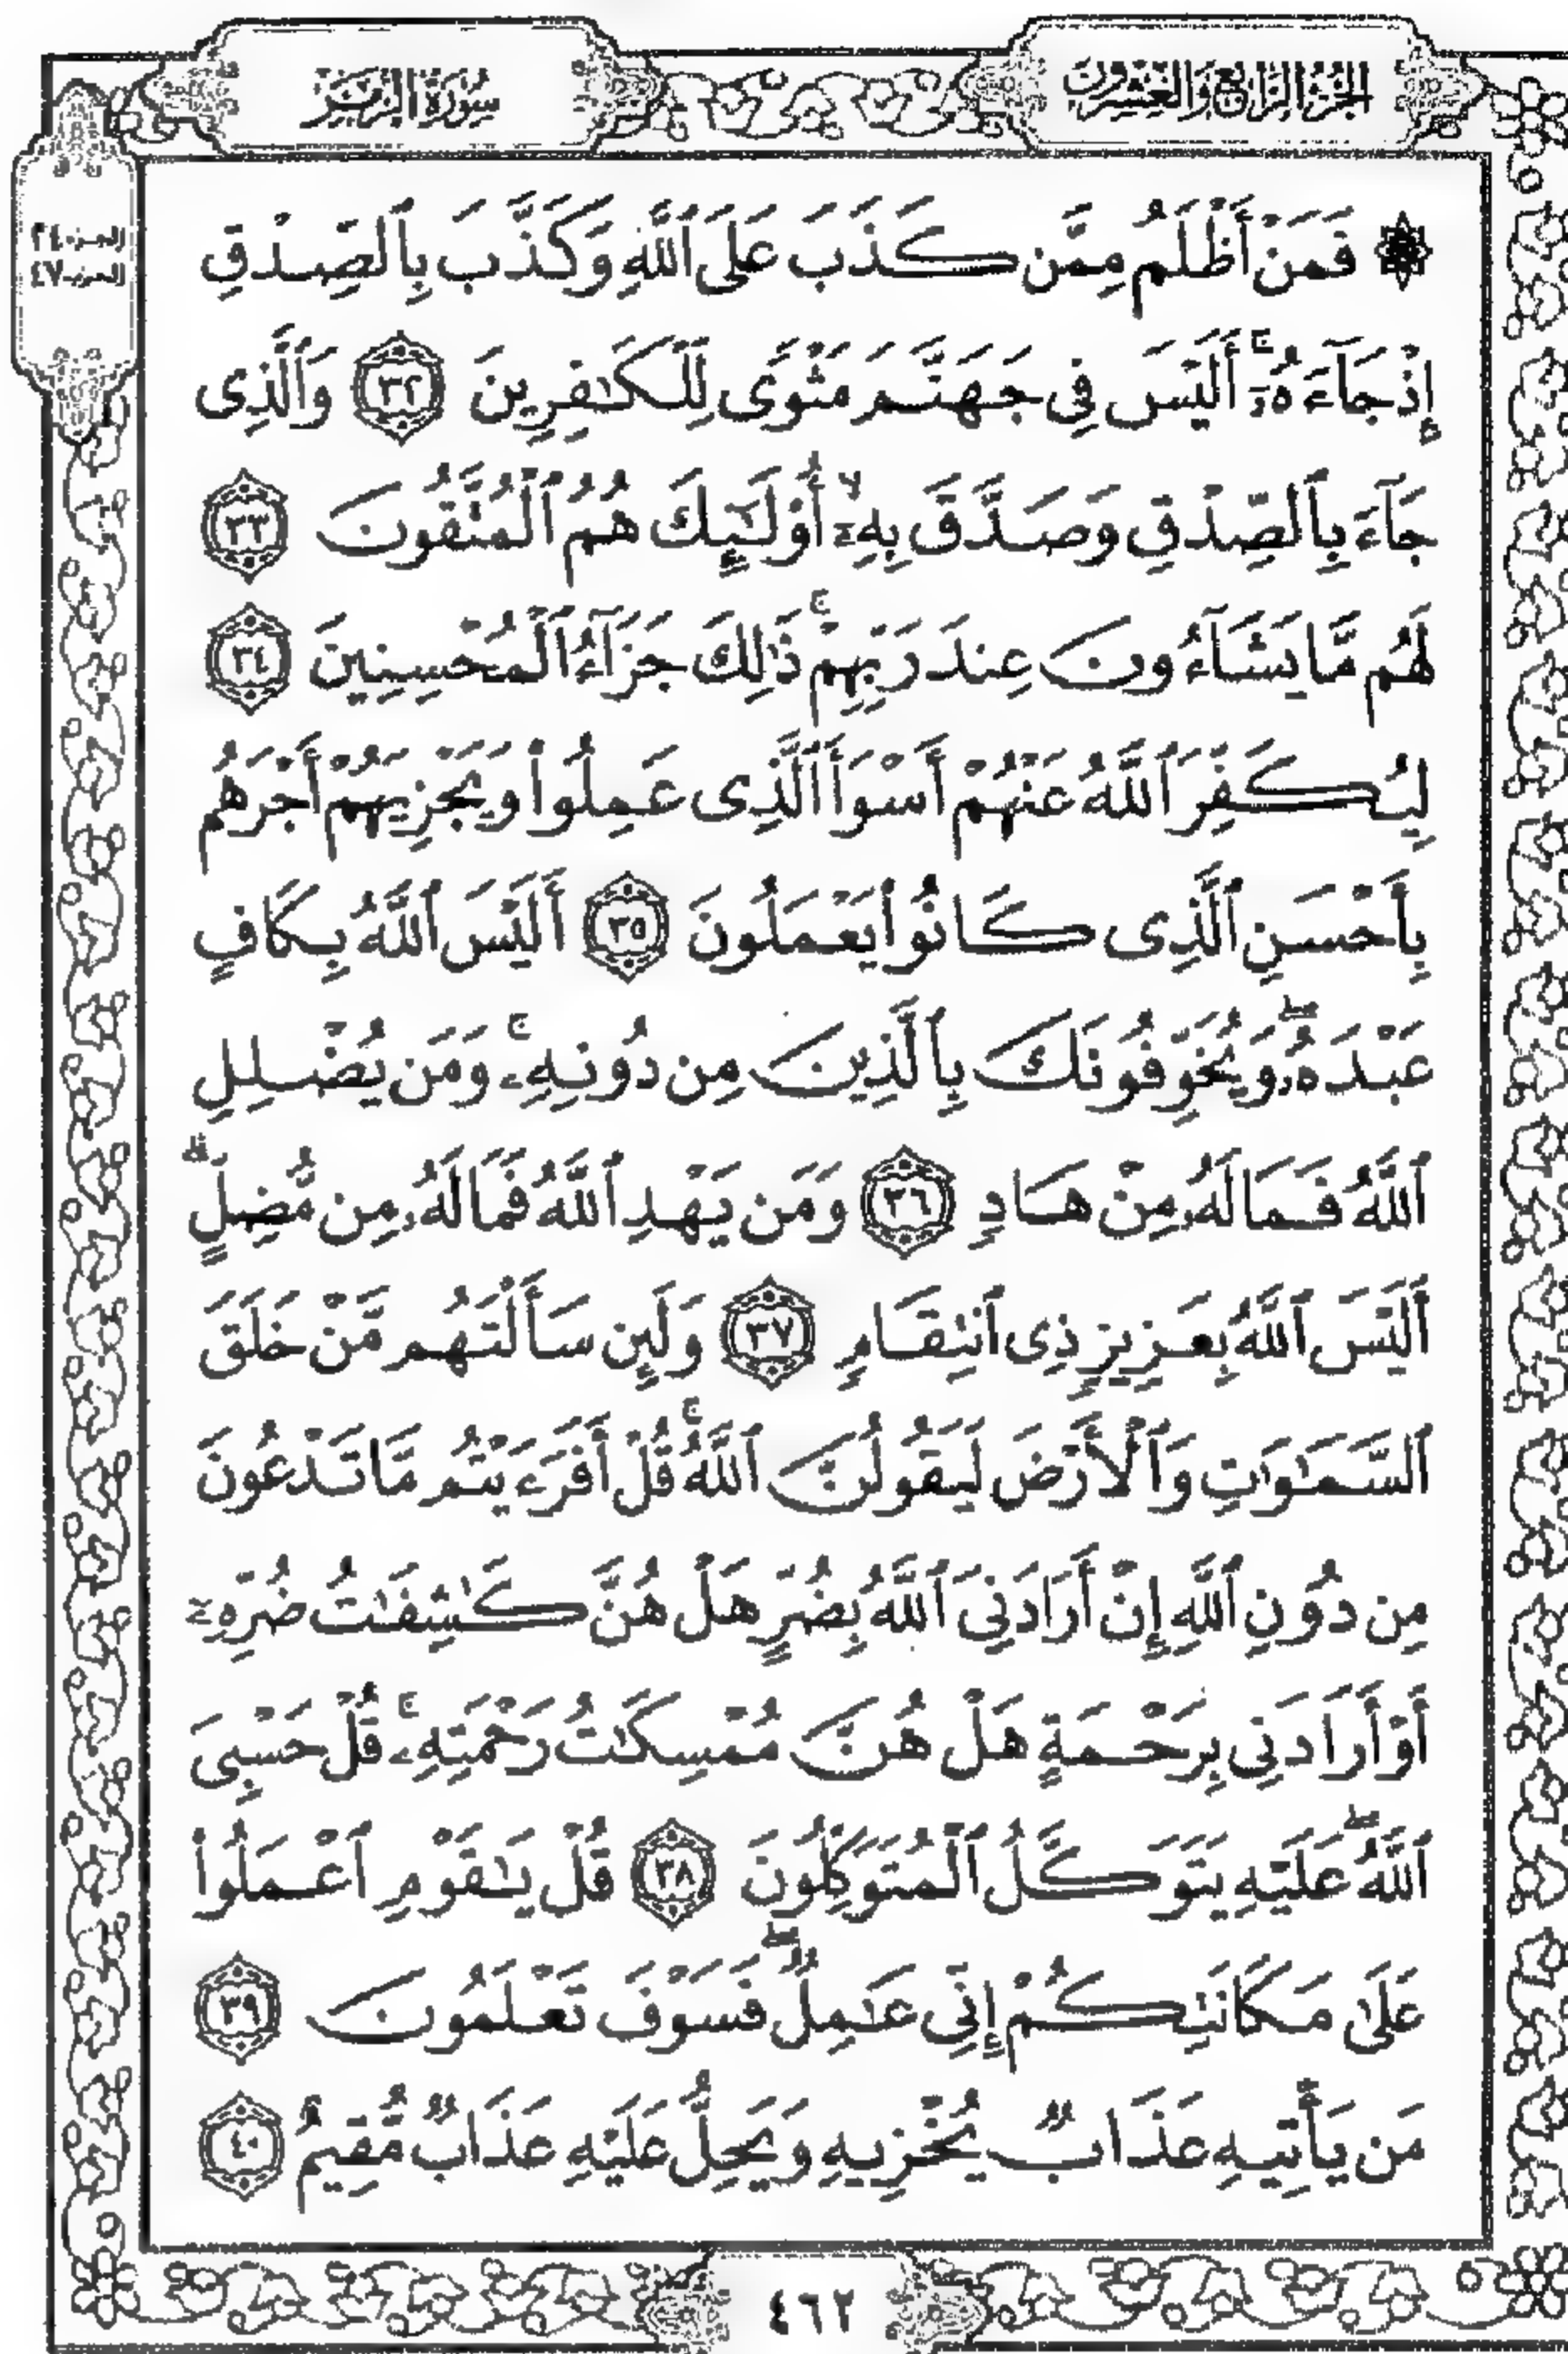 الجزء الرابع والعشرون
سورة الزمر
الجزء ٢٤
الحزب ٤٧
۞ فَمَنْ أَظْلَمُ مِمَّن كَذَبَ عَلَى ٱللَّهِ وَكَذَّبَ بِٱلصِّدْقِ
إِذْ جَآءَهُۥٓۚ أَلَيْسَ فِى جَهَنَّمَ مَثْوًى لِّلْكَـٰفِرِينَ ٣٢ وَٱلَّذِى
جَآءَ بِٱلصِّدْقِ وَصَدَّقَ بِهِۦٓۙ أُوْلَـٰٓئِكَ هُمُ ٱلْمُتَّقُونَ ٣٣
لَهُم مَّا يَشَآءُونَ عِندَ رَبِّهِمْۚ ذَٰلِكَ جَزَآءُ ٱلْمُحْسِنِينَ ٣٤
لِيُكَفِّرَ ٱللَّهُ عَنْهُمْ أَسْوَأَ ٱلَّذِى عَمِلُوا۟ وَيَجْزِيَهُمْ أَجْرَهُم
بِأَحْسَنِ ٱلَّذِى كَانُوا۟ يَعْمَلُونَ ٣٥ أَلَيْسَ ٱللَّهُ بِكَافٍ
عَبْدَهُۥۖ وَيُخَوِّفُونَكَ بِٱلَّذِينَ مِن دُونِهِۦۚ وَمَن يُضْلِلِ
ٱللَّهُ فَمَا لَهُۥ مِنْ هَادٍ ٣٦ وَمَن يَهْدِ ٱللَّهُ فَمَا لَهُۥ مِن مُّضِلٍّۗ
أَلَيْسَ ٱللَّهُ بِعَزِيزٍ ذِى ٱنتِقَامٍ ٣٧ وَلَئِن سَأَلْتَهُم مَّنْ خَلَقَ
ٱلسَّمَـٰوَٰتِ وَٱلْأَرْضَ لَيَقُولُنَّ ٱللَّهُۚ قُلْ أَفَرَءَيْتُم مَّا تَدْعُونَ
مِن دُونِ ٱللَّهِ إِنْ أَرَادَنِىَ ٱللَّهُ بِضُرٍّ هَلْ هُنَّ كَـٰشِفَـٰتُ ضُرِّهِۦٓ
أَوْ أَرَادَنِى بِرَحْمَةٍ هَلْ هُنَّ مُمْسِكَـٰتُ رَحْمَتِهِۦۚ قُلْ حَسْبِىَ
ٱللَّهُۖ عَلَيْهِ يَتَوَكَّلُ ٱلْمُتَوَكِّلُونَ ٣٨ قُلْ يَـٰقَوْمِ ٱعْمَلُوا۟
عَلَىٰ مَكَانَتِكُمْ إِنِّى عَـٰمِلٌۖ فَسَوْفَ تَعْلَمُونَ ٣٩
مَن يَأْتِيهِ عَذَابٌ يُخْزِيهِ وَيَحِلُّ عَلَيْهِ عَذَابٌ مُّقِيمٌ ٤٠
٤٦٢